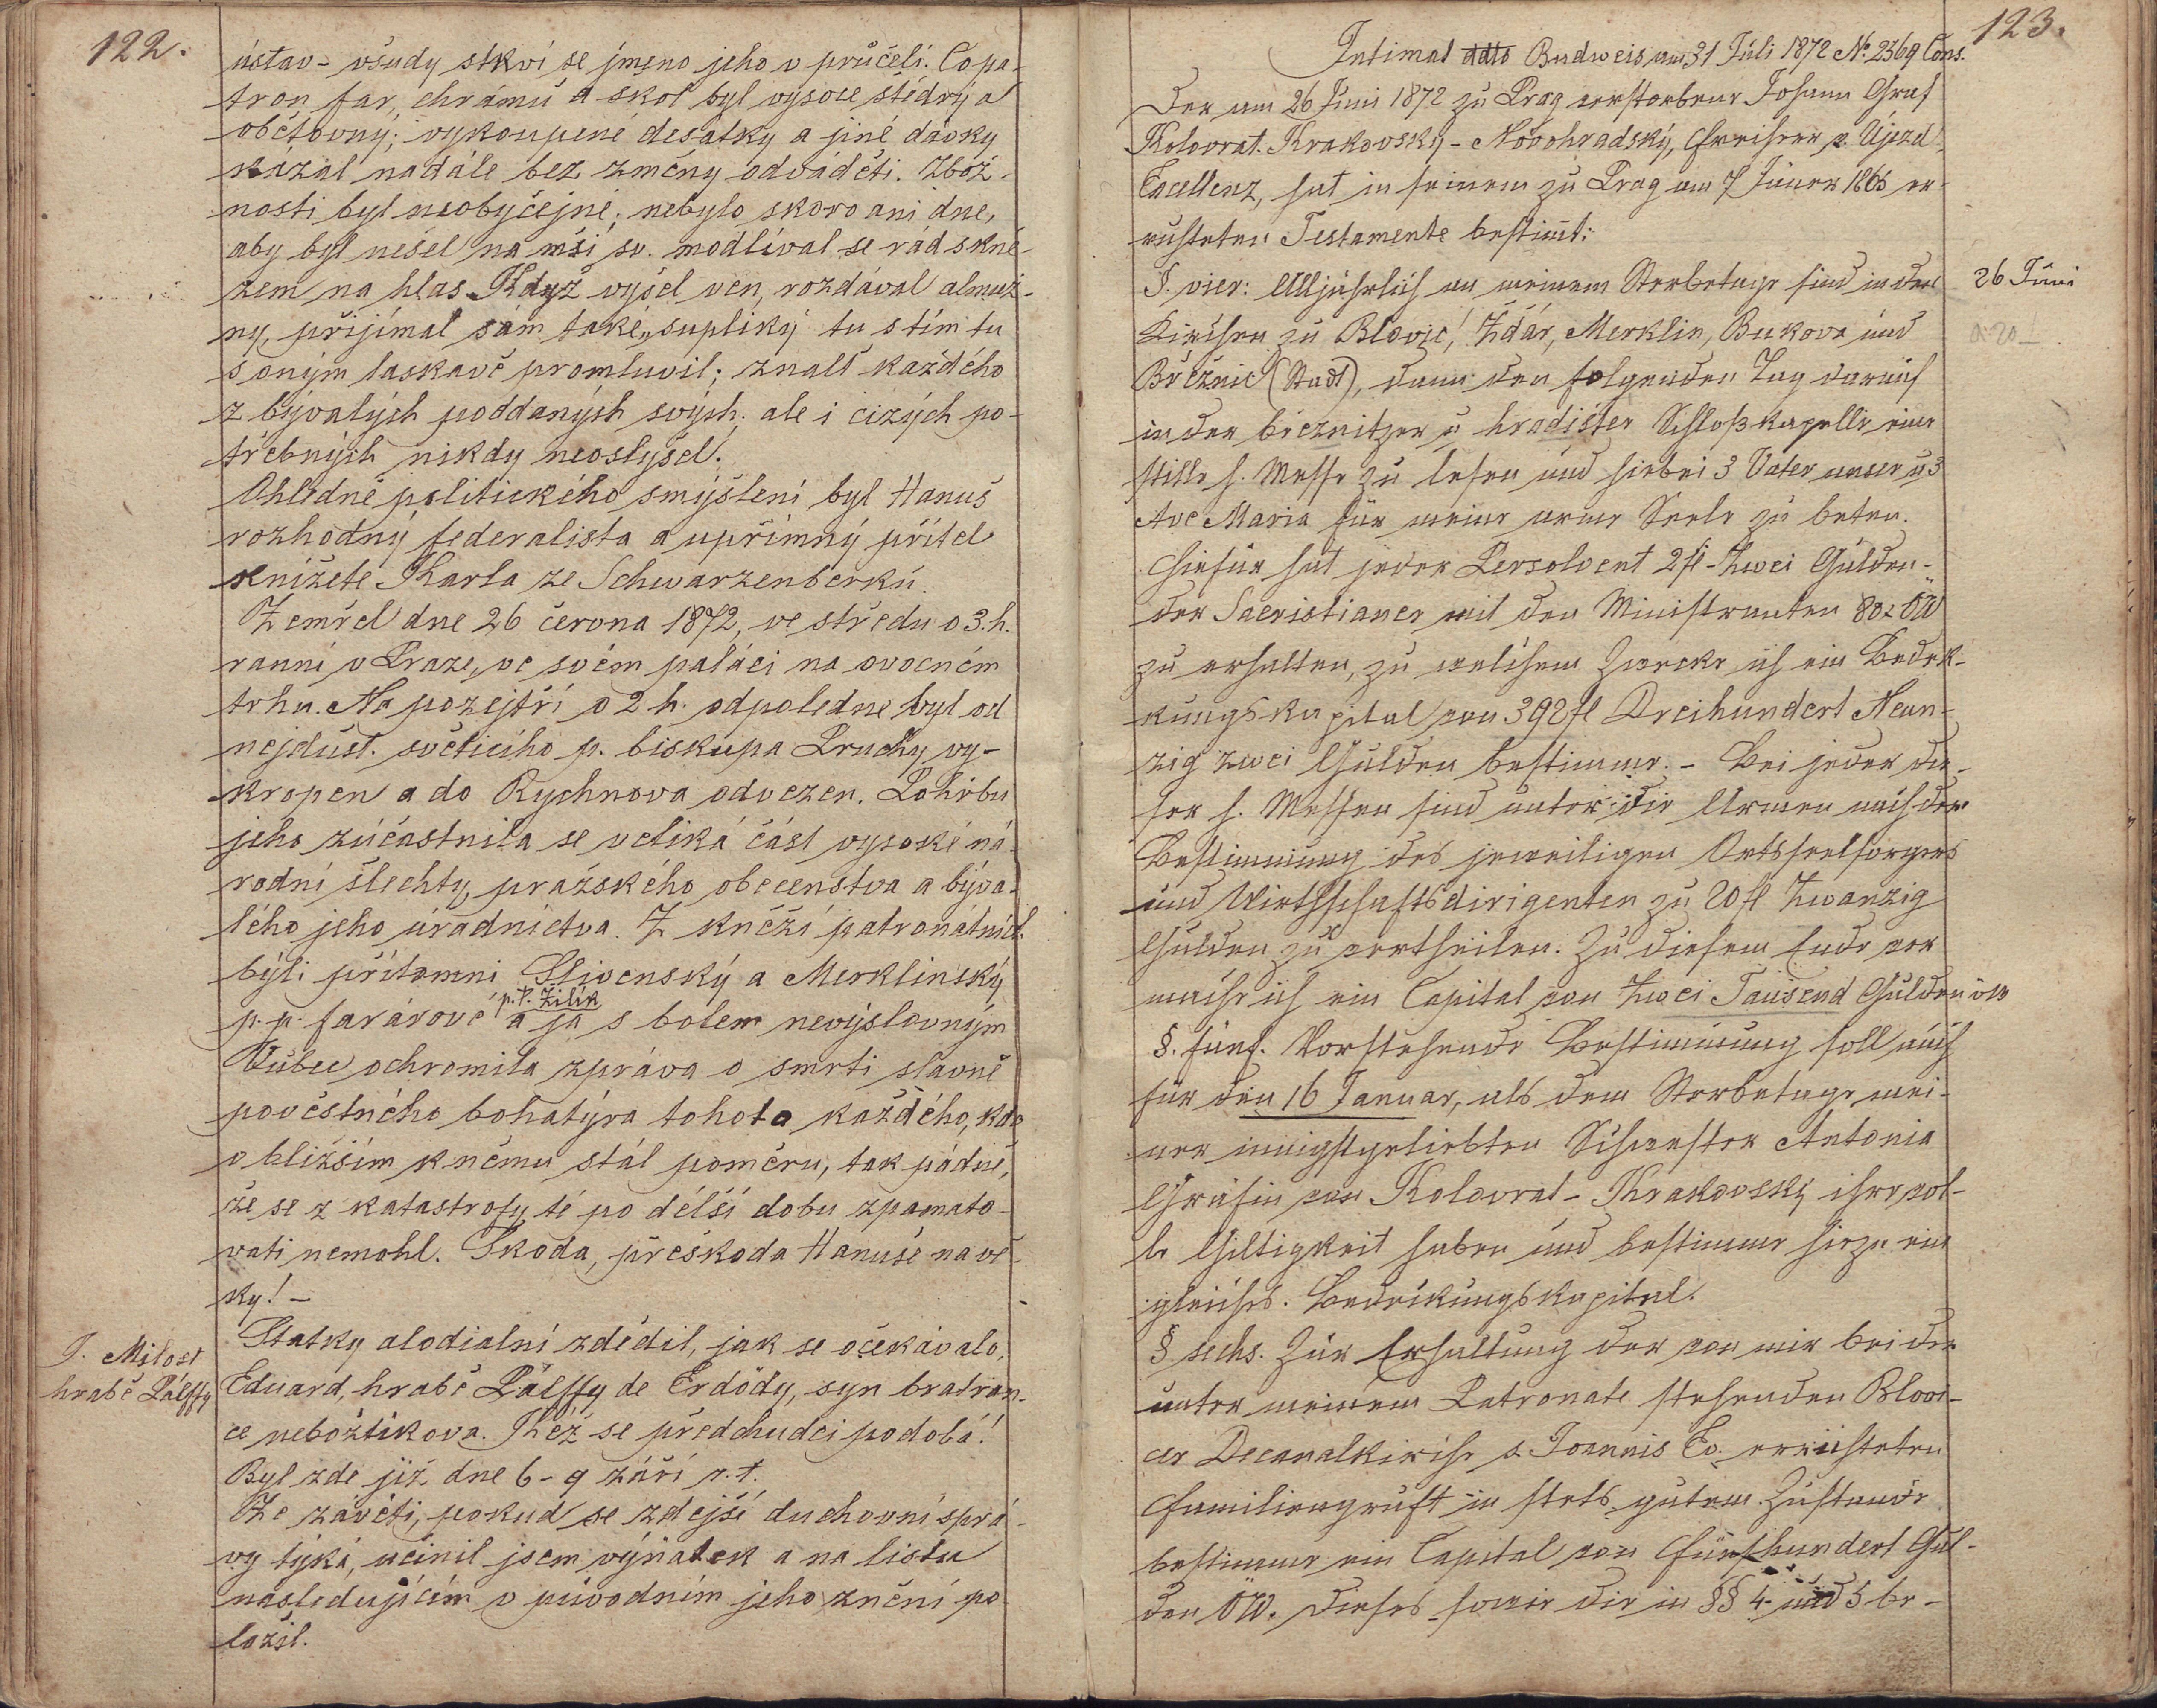 122.
ústav - všudy stkví se jmeno jeho v průčelí. Co pa-
tron far, chrámů a škol byl vysoce štědrý a
obětovný; vykoupené desátky a jiné dávky
kázal nadále bez změny odváděti. Zbož-
nosti byl neobyčejné; nebylo skoro ani dne,
aby byl nešel na mši sv. modlíval se rád s kně-
zem na hlas. Když vyšel ven, rozdával almuž-
ny, přijímal sám také „supliky" tu s tím tu
s oným laskavě promluvil; znalť každého
z bývalých poddaných svých; ale i cizých po-
třebných nikdy neoslyšel.
Ohledně politického smýšlení byl Hanuš
rozhodný federalista a upřímný přítel
knížete Karla ze Schwarzenberků.
Zemřel dne 26 června 1872, ve středu o 3. h.
ranní v Praze, ve svém paláci na ovocném
trhu. Na pozejtří o 2 h. odpoledne byl od
nejdůst. světícího p. biskupa Pruchy vy-
kropen a do Rychnova odvezen. Pohřbu
jeho zúčastnila se veliká část vysoké ná-
rodní šlechty, pražského obecenstva a býva-
lého jeho úřadnictva. Z kněží patronátních
byli přítomni Slivenský a Merklínský
p. p. farárové p. P. Žilík a já s bolem nevýslovným
Vůbec ochromila zpráva o smrti slavně
pověstného bohatýra tohoto každého, kdo
v bližším k němu stál poměru, tak pádně,
že se z katastrofy té po délší dobu zpamato-
vati nemohl. Škoda, přeškoda Hanuše na vě-
ky! -
J. Milost
hrabě Pálffy
Statky alodialní zdědil, jak se očekávalo,
Eduard, hrabě Pálffy de Erdödy, syn bratran-
ce nebožtíkova. Kéž se předchudci podobá!
Byl zde již dne 6-9 září r. t.
Ze závěti, pokud se zdejší duchovní sprá-
vy týká, učinil jsem výňatek a na listu
následujícím v původním jeho znění po-
ložil.
123.
Intimat ddto Budweis am 31 Juli 1872 No. 2369 Cons.
Der am 26 Juni 1872 zu Prag verstorbene Johann Graf
Kolovrat-Krakovský-Novohradský, Freiherr v. Újezd,
Excellenz, hat in seinem zu Prag am 7 Jäner 1865 er-
richteten Testamente bestimmt:
§. vier: Alljährlich an meinem Sterbetage sind in den
26 Juni
Kirchen zu Blovic, Ždár, Merklin, Bukova und
Březnic (Stadt), dann den folgenden Tag darauf
in der březnitzer u hradišter Schloßkapelle eine
stille h. Messe zu lesen und hiebei 3 Vater unser u 3
Ave Maria für meine arme Seele zu beten.
Hiefür hat jeder Persolvent 2 fl - Zwei Gulden -
der Sacristianer mit den Ministranten 80 x ÖW
zu erhalten, zu welchem Zwecke ich ein Bedek-
kungskapital von 392 fl Dreihundert Neun-
zig zwei Gulden bestimme. - Bei jeder die-
ser h. Messen sind unter die Armen nach der
Bestimmung des jeweiligen Ortsseelsorgers
und Wirthschaftsdirigenten zu 20 fl Zwanzig
Gulden zu vertheilen. Zu diesem Ende ver
mache ich ein Capital von Zwei Tausend Gulden öw
§. fünf. Vorstehende Bestimmung soll auch
für den 16 Januar, als dem Sterbetage mei-
ner innigstgeliebten Schwester Antonia
Gräfin von Kolovrat-Krakovský ihre vol-
le Giltigkeit haben und bestimme hiezu ein
gleiches Bedeckungskapital.
§ sechs. Zur Erhaltung der von mir bei der
unter meinem Patronate stehenden Blovi-
cer Decanalkirche s. Joannis Ev. errichteten
Familiengruft in stets gutem Zustande
bestimme ein Capital von Fünfhundert Gul-
den ÖW. Dieses sowie die in §§ 4 und 5 be-